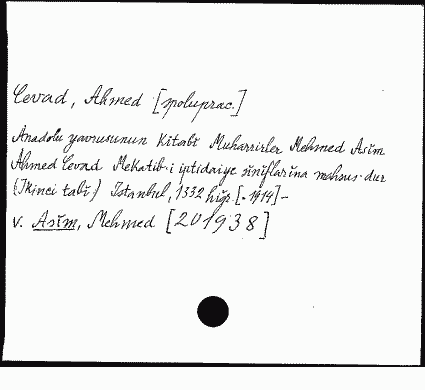 Cevad, Ahmed [spoluprac.]
Anadolu yavrusunun Kitabî Muharrirler Mehmed Asîm
Ahmed Cevad Mekatib-i iptidaiye sînîflarîna mahsus-dur
(Ikinci tabî) Istanbul, 1332 hiğr. [=1914] -
v. Asîm, Mehmed [201938]